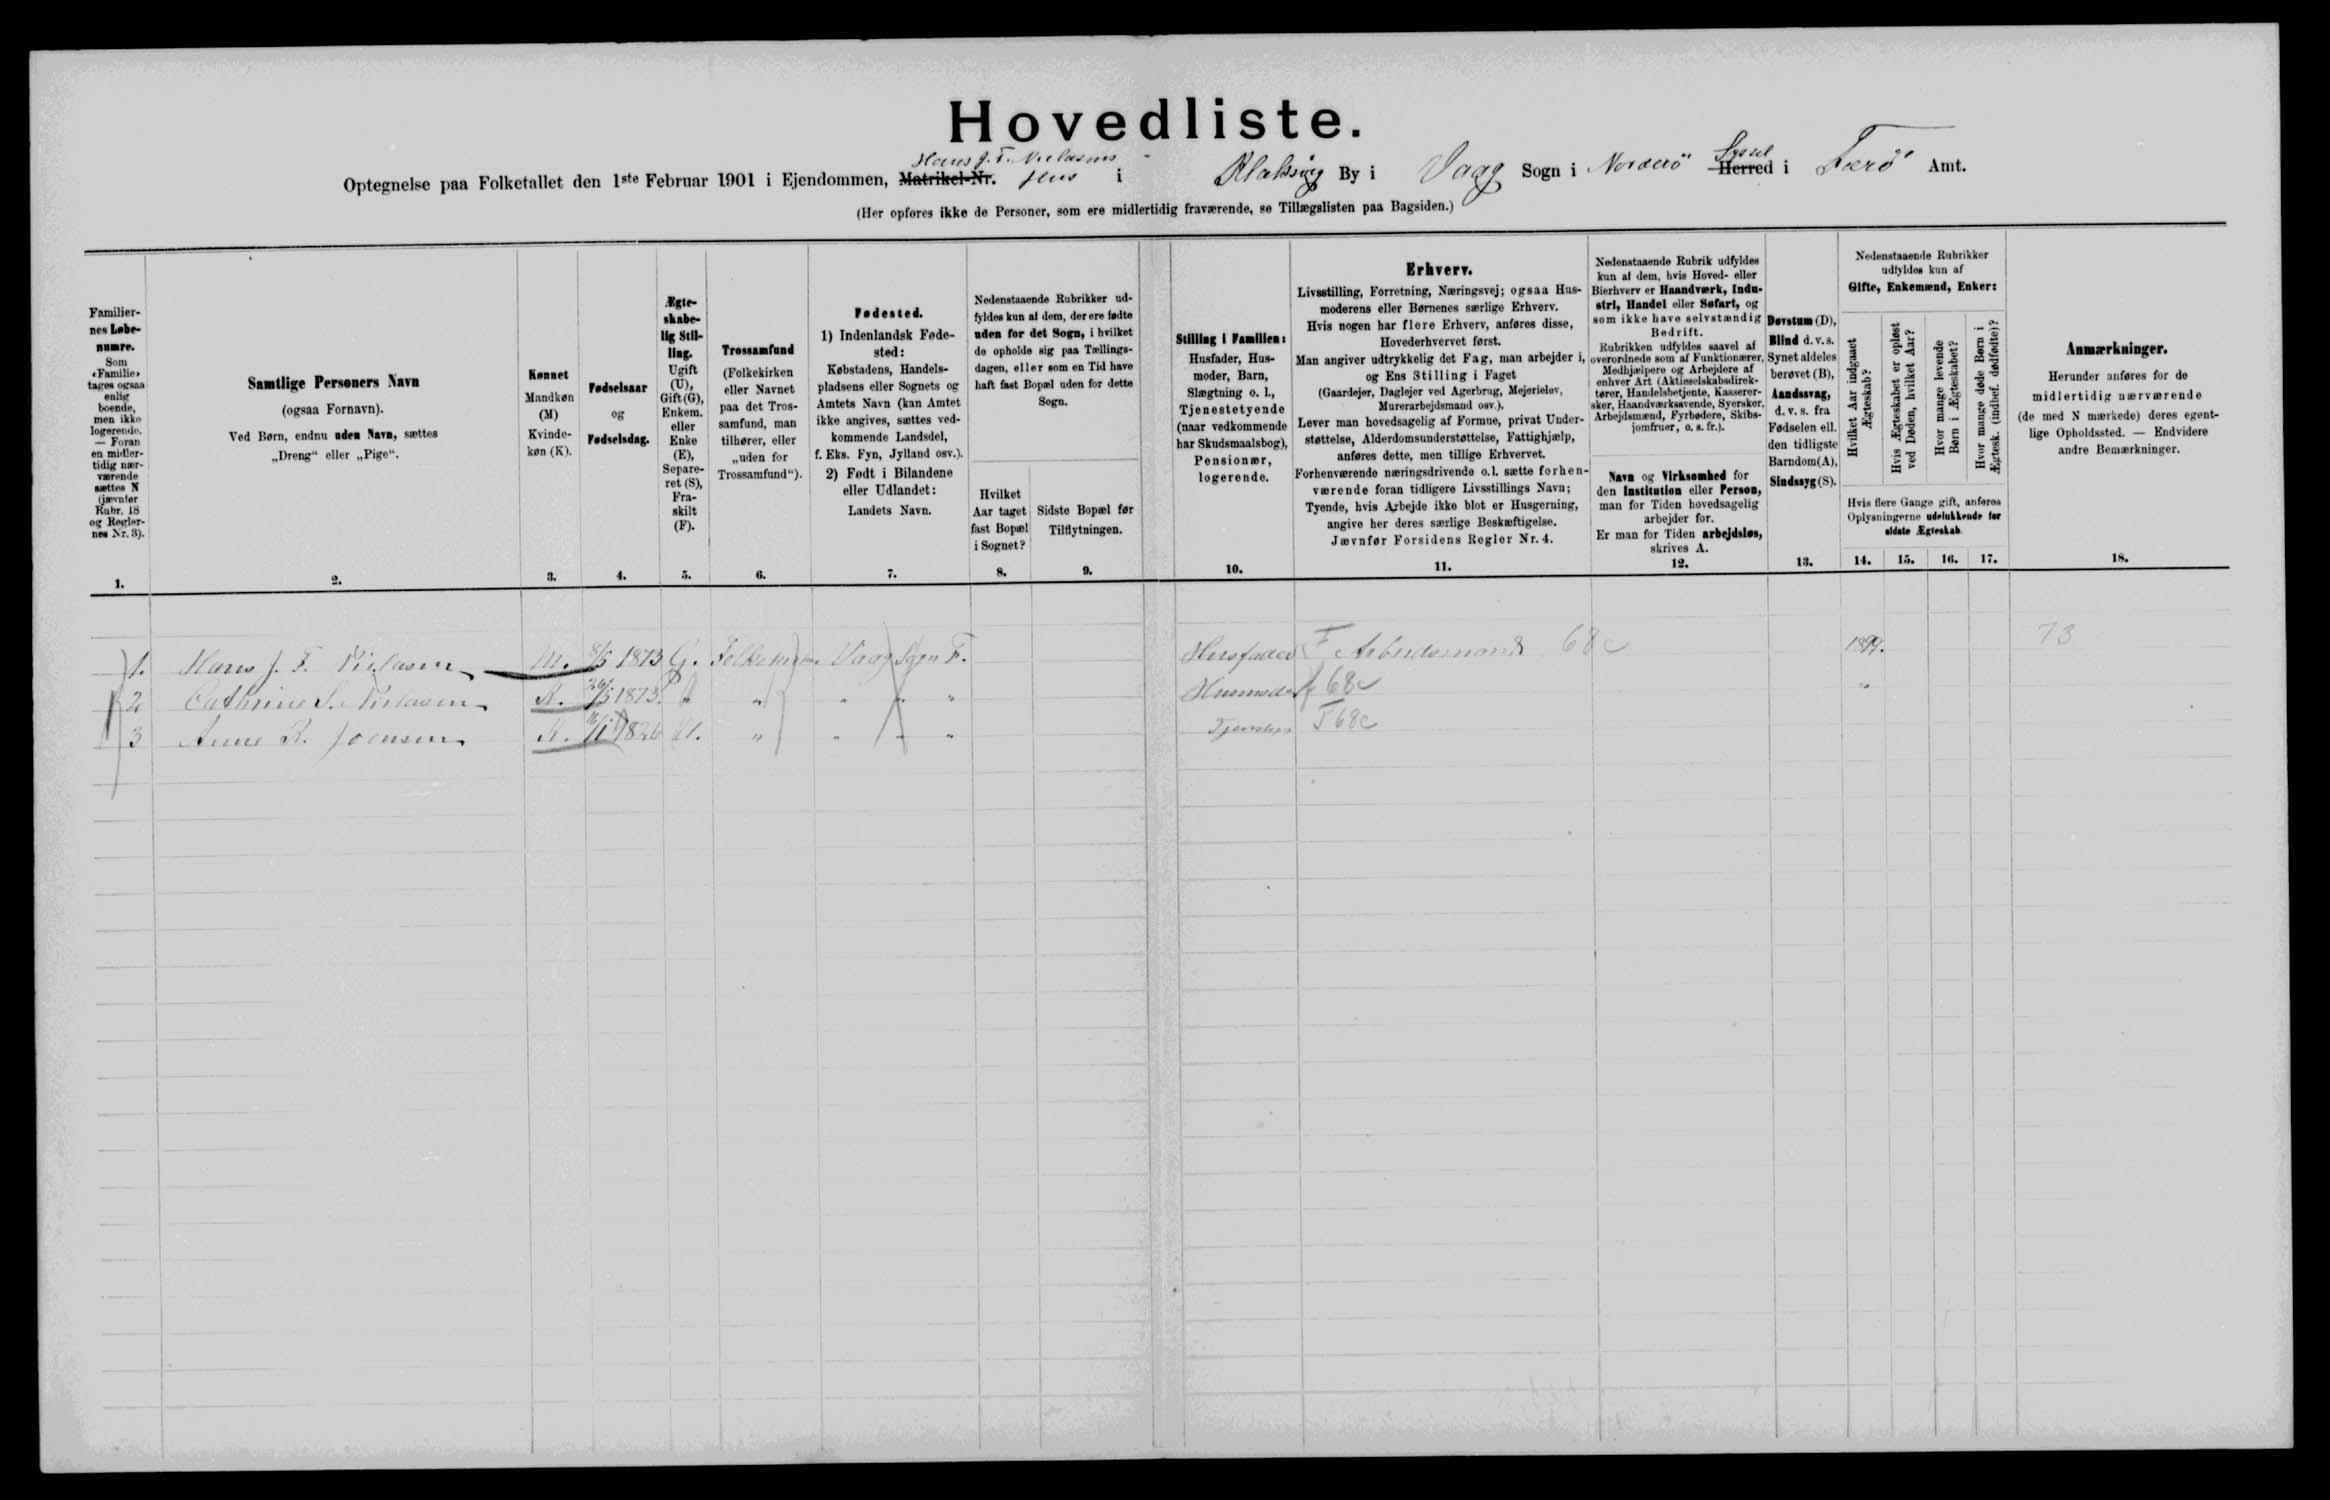 Hovedliste.
Optegnelse paa Folketallet den 1ste Februar 1901 i Ejendommen, Matrikel-Nr. Hans J. F. Nielasens Hus i Klaksvig By i Vaag Sogn i Norderö Herred Syssel i Færö Amt.
(Her opføres ikke de Personer, som ere midlertidig fraværende, se Tillægslisten paa Bagsiden.)
Familier-
nes Løbe-
numre.
Som
«Familie»
tages ogsaa
enlig
boende,
men ikke
logerende.
— Foran
en midler-
tidig nær-
værende
sættes N
(jævnfør
Rubr. 18
og Regler-
nes Nr. 3).
1.
Samtlige Personers Navn
(ogsaa Fornavn).
Ved Børn, endnu uden Navn, sættes
„Dreng“ eller „Pige“.
2.
Kønnet
Mandkøn
(M)
Kvinde-
køn (K).
3.
Fødselsaar
og
Fødselsdag.
4.
Ægte-
skabe-
lig Stil-
ling.
Ugift
(U),
Gift (G),
Enkem.
eller
Enke
(E),
Separe-
ret (S),
Fra-
skilt
(F).
5.
Trossamfund
(Folkekirken
eller Navnet
paa det Tros-
samfund, man
tilhører, eller
„uden for
Trossamfund“).
6.
Fødested.
1) Indenlandsk Føde-
sted:
Købstadens, Handels-
pladsens eller Sognets og
Amtets Navn (kan Amtet
ikke angives, sættes ved-
kommende Landsdel,
f. Eks. Fyn, Jylland osv.).
2) Født i Bilandene
eller Udlandet:
Landets Navn.
7.
Nedenstaaende Rubrikker ud-
fyldes kun af dem, der ere fødte
uden for det Sogn, i hvilket
de opholde sig paa Tællings-
dagen, eller som en Tid have
haft fast Bopæl uden for dette
Sogn.
Hvilket
Aar taget
fast Bopæl
i Sognet?
8.
Sidste Bopæl før
Tilflytningen.
9.
Stilling i Familien:
Husfader, Hus-
moder, Barn,
Slægtning o. l.,
Tjenestetyende
(naar vedkommende
har Skudsmaalsbog),
Pensionær,
logerende.
10.
Erhverv.
Livsstilling, Forretning, Næringsvej; ogsaa Hus-
moderens eller Børnenes særlige Erhverv.
Hvis nogen har flere Erhverv, anføres disse,
Hovederhvervet først.
Man angiver udtrykkelig det Fag, man arbejder i,
og Ens Stilling i Faget
(Gaardejer, Daglejer ved Agerbrug, Mejerielev,
Murerarbejdsmand osv.).
Lever man hovedsagelig af Formue, privat Under-
støttelse, Alderdomsunderstøttelse, Fattighjælp,
anføres dette, men tillige Erhvervet.
Forhenværende næringsdrivende o.l. sætte forhen-
værende foran tidligere Livsstillings Navn;
Tyende, hvis Arbejde ikke blot er Husgerning,
angive her deres særlige Beskæftigelse.
Jævnfør Forsidens Regler Nr. 4.
11.
Nedenstaaende Rubrik udfyldes
kun af dem, hvis Hoved- eller
Bierhverv er Haandværk, Indu-
stri, Handel eller Søfart, og
som ikke have selvstændig
Bedrift.
Rubrikken udfyldes saavel af
overordnede som af Funktionærer,
Medhjælpere og Arbejdere af
enhver Art (Aktieselskabsdirek-
tører, Handelsbetjente, Kasserer-
sker, Haandværkssvende, Syersker,
Arbejdsmænd, Fyrbødere, Skibs-
jomfruer, o. s. fr.).
Navn og Virksomhed for
den Institution eller Person,
man for Tiden hovedsagelig
arbejder for.
Er man for Tiden arbejdsløs,
skrives A.
12.
Døvstum (D),
Blind d. v. s.
Synet aldeles
berøvet (B),
Aandssvag,
d. v. s. fra
Fødselen ell.
den tidligste
Barndom (A),
Sindssyg (S).
13.
Nedenstaaende Rubrikker
udfyldes kun af
Gifte, Enkemænd, Enker:
Hvilket Aar indgaaet
Ægteskab?
Hvis Ægteskabet er opløst
ved Døden, hvilket Aar?
Hvor mange levende
Børn i Ægteskabet?
Hvor mange døde Børn i
Ægtesk. (indbef. dødfødte)?
Hvis flere Gange gift, anføres
Oplysningerne udelukkende for
sidste Ægteskab.
14. 15. 16. 17.
Anmærkninger.
Herunder anføres for de
midlertidig nærværende
(de med N mærkede) deres egent-
lige Opholdssted. — Endvidere
andre Bemærkninger.
18.
1. Hans J. F. Nielasen M. 8/5 1873 G. Folkekirken Vaag Sogn F. Husfader F Arbeidsmand 68c 1899. 73
2 Cathrine S. Nielasen K. 26/5 1873. " " " " " Husmoder 68c "
3 Anne K. Joensen K. 1826 U. " " " " Tjeneste T 68c